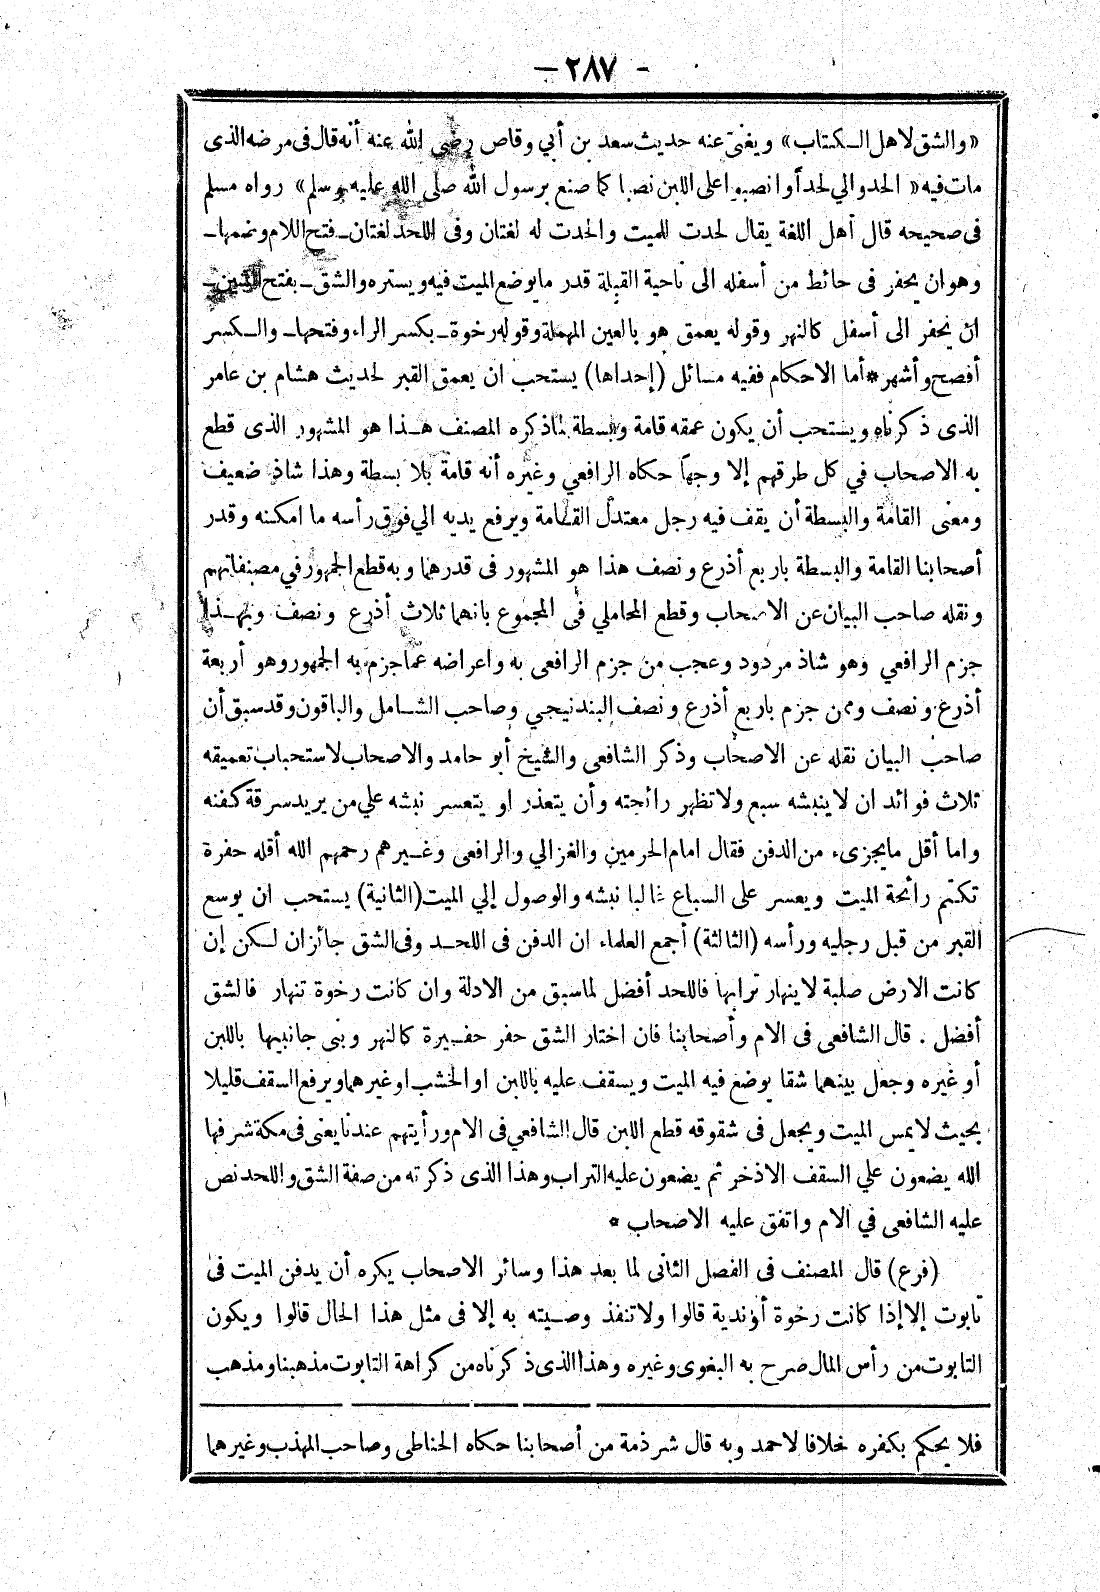 - ٢٨٧ -
«والشق لاهل الكتاب» ويغنى عنه حديث سعد بن أبي وقاص رضي الله عنه أنه قال فى مرضه الذى
مات فيه «الحدوالي لحداً وانصبوا على اللبن نصبا كما صنع برسول الله صلى الله عليه وسلم» رواه مسلم
فى صحيحه قال أهل اللغة يقال لحدت للميت والحدت له لغتان وفى اللحد لغتان ـ فتح اللام وضمها ـ
وهو ان يحفر فى حائط من أسفله الى ناحية القبلة قدر ما يوضع الميت فيه ويستره والشق ـ بفتح الشين ـ
ان يحفر الى أسفل كالنهر وقوله يعمق هو بالعين المهملة وقوله رخوة ـ بكسر الراء وفتحها ـ والكسر
أفصح وأشهر * أما الاحكام ففيه مسائل (إحداها) يستحب ان يعمق القبر لحديث هشام بن عامر
الذى ذكرناه ويستحب أن يكون عمقه قامة وبسطة لماذكره المصنف هذا هو المشهور الذى قطع
به الاصحاب في كل طرقهم إلا وجهاً حكاه الرافعي وغيره أنه قامة بلا بسطة وهذا شاذ ضعيف
ومعنى القامة والبسطة أن يقف فيه رجل معتدل القامة ويرفع يديه الي فوق رأسه ما امكنه وقدر
أصحابنا القامة والبسطة باربع أذرع ونصف هذا هو المشهور فى قدرهما وبه قطع الجمهور في مصنفاتهم
ونقله صاحب البيان عن الاصحاب وقطع المحاملي فى المجموع بانهما ثلاث أذرع ونصف وبهذا
جزم الرافعي وهو شاذ مردود وعجب من جزم الرافعى به واعراضه عما جزم به الجمهور وهو أربعة
أذرع ونصف وممن جزم باربع أذرع ونصف البندنيجي وصاحب الشامل والباقون وقد سبق أن
صاحب البيان نقله عن الاصحاب وذكر الشافعى والشيخ أبو حامد والاصحاب لاستحباب تعميقه
ثلاث فوائد ان لا ينبشه سبع ولا تظهر رائحته وأن يتعذر او يتعسر نبشه علي من يريد سرقة كفنه
واما أقل مايجزىء من الدفن فقال امام الحرمين والغزالي والرافعى وغيرهم رحمهم الله أقله حفرة
تكتم رائحة الميت ويعسر على السباع غالبا نبشه والوصول إلي الميت (الثانية) يستحب ان يوسع
القبر من قبل رجليه ورأسه (الثالثة) أجمع العلماء ان الدفن فى اللحد وفى الشق جائزان لكن إن
كانت الارض صلبة لا ينهار ترابها فاللحد أفضل لماسبق من الادلة وان كانت رخوة تنهار فالشق
أفضل . قال الشافعى فى الام وأصحابنا فان اختار الشق حفر حفيرة كالنهر وبنى جانبيها باللبن
أو غيره وجعل بينهما شقا يوضع فيه الميت ويسقف عليه باللبن او الخشب او غيرهما ويرفع السقف قليلا
بحيث لا يمس الميت ويجعل فى شقوقه قطع اللبن قال الشافعي فى الام ورأيتهم عندنا يعنى فى مكة شرفها
الله يضعون علي السقف الاذخر ثم يضعون عليه التراب وهذا الذى ذكرته من صفة الشق واللحد نص
عليه الشافعى في الام واتفق عليه الاصحاب *
(فرع) قال المصنف فى الفصل الثانى لما بعد هذا وسائر الاصحاب يكره أن يدفن الميت فى
تابوت إلا إذا كانت رخوة أو ندية قالوا ولا تنفذ وصيته به إلا فى مثل هذا الحال قالوا ويكون
التابوت من رأس المال صرح به البغوى وغيره وهذا الذى ذكرناه من كراهة التابوت مذهبنا ومذهب
فلا يحكم بكفره خلافا لاحمد وبه قال شرذمة من أصحابنا حكاه الحناطى وصاحب المهذب وغيرهما